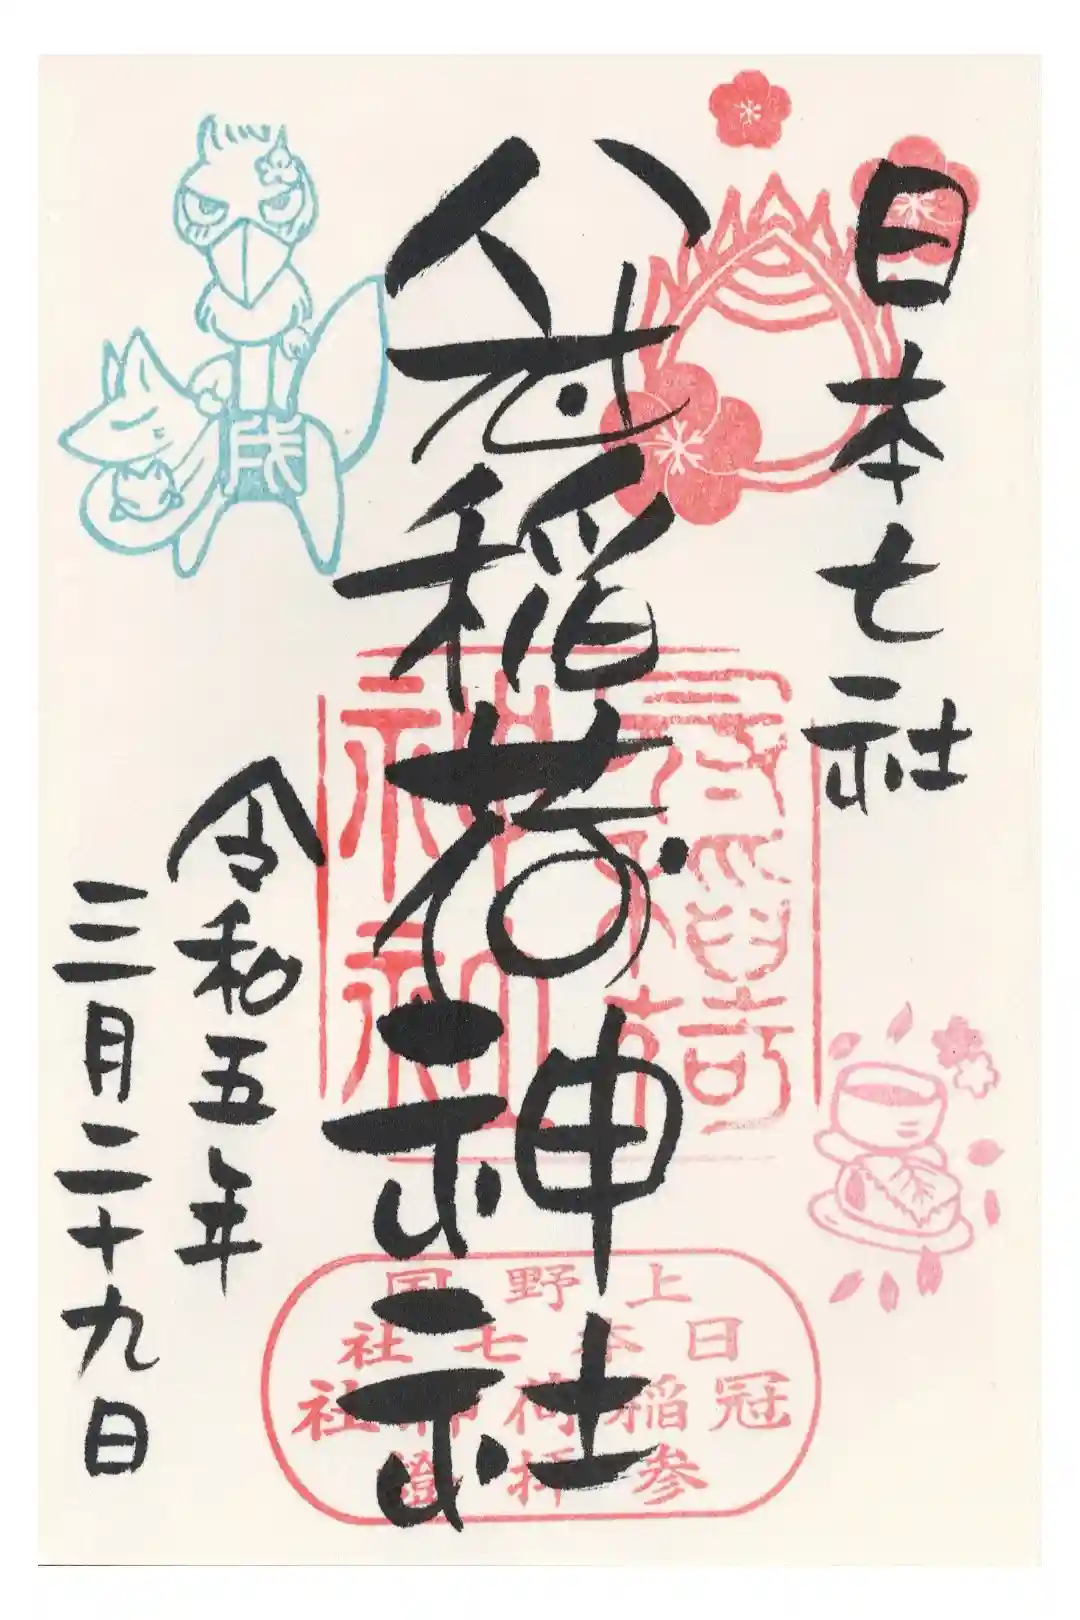 日本七社
冠稲荷神社
令和五年
三月二十九日
冠稲荷
神社
上野国
日本七社
冠稲荷神社
参拝證